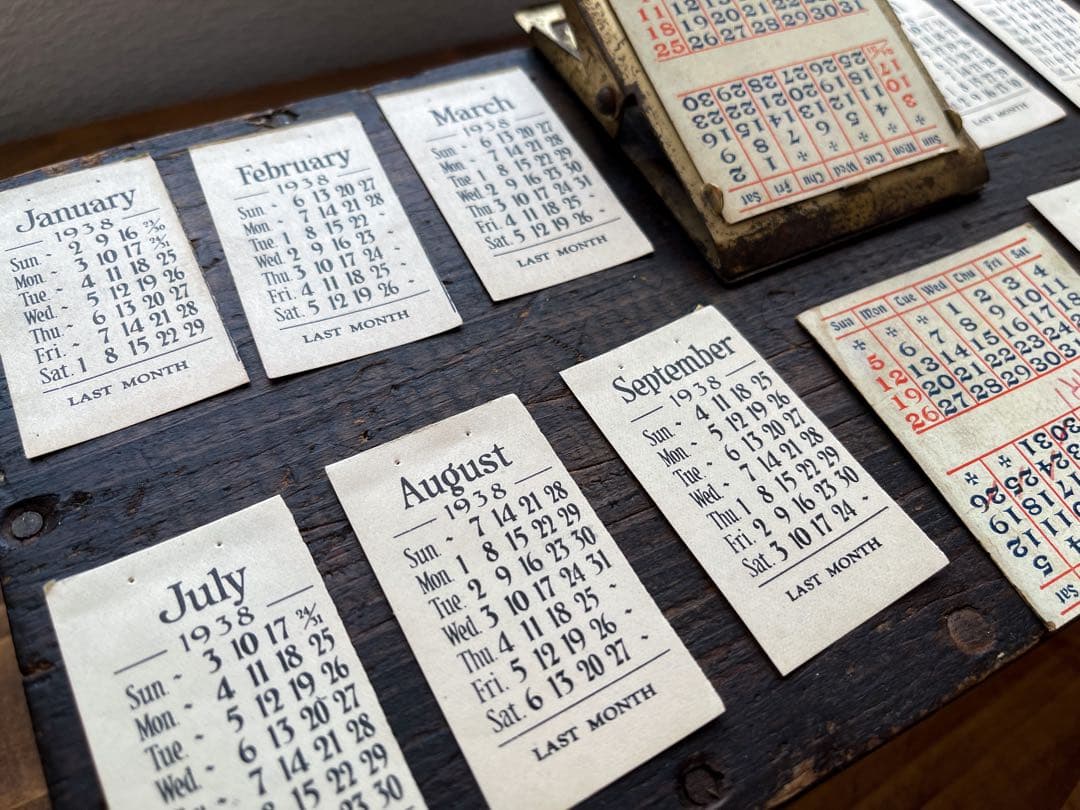 January
1938
Sun. - 2 9 16 23/30
Mon. - 3 10 17 24/31
Tue. - 4 11 18 25
Wed. - 5 12 19 26
Thu. - 6 13 20 27
Fri. - 7 14 21 28
Sat. 1 8 15 22 29
LAST MONTH
February
1938
Sun. - 6 13 20 27
Mon. - 7 14 21 28
Tue. 1 8 15 22 -
Wed. 2 9 16 23 -
Thu. 3 10 17 24 -
Fri. 4 11 18 25 -
Sat. 5 12 19 26 -
LAST MONTH
March
1938
Sun. - 6 13 20 27
Mon. - 7 14 21 28
Tue. 1 8 15 22 29
Wed. 2 9 16 23 30
Thu. 3 10 17 24 31
Fri. 4 11 18 25 -
Sat. 5 12 19 26 -
LAST MONTH
11 12
18 19 20 21 22 23 24
25 26 27 28 29 30 31
Sun Mon Tue Wed Thu Fri Sat
1 2
3 4 5 6 7 8 9
10 11 12 13 14 15 16
17 18 19 20 21 22 23
25 26 27 28 29 30
LAST MONTH
July
1938
Sun. - 3 10 17 24/31
Mon. - 4 11 18 25
Tue. - 5 12 19 26
Wed. - 6 13 20 27
7 14 21 28
15 22 29
23 30
August
1938
Sun. - 7 14 21 28
Mon. 1 8 15 22 29
Tue. 2 9 16 23 30
Wed. 3 10 17 24 31
Thu. 4 11 18 25 -
Fri. 5 12 19 26 -
Sat. 6 13 20 27 -
LAST MONTH
September
1938
Sun. - 4 11 18 25
Mon. - 5 12 19 26
Tue. - 6 13 20 27
Wed. - 7 14 21 28
Thu. 1 8 15 22 29
Fri. 2 9 16 23 30
Sat. 3 10 17 24 -
LAST MONTH
Sun Mon Tue Wed Thu Fri Sat
1 2 3 4
5 6 7 8 9 10 11
12 13 14 15 16 17 18
19 20 21 22 23 24 25
26 27 28 29 30 31
Sat
4 5
11 12
17 18 19
24 25 26
30 31